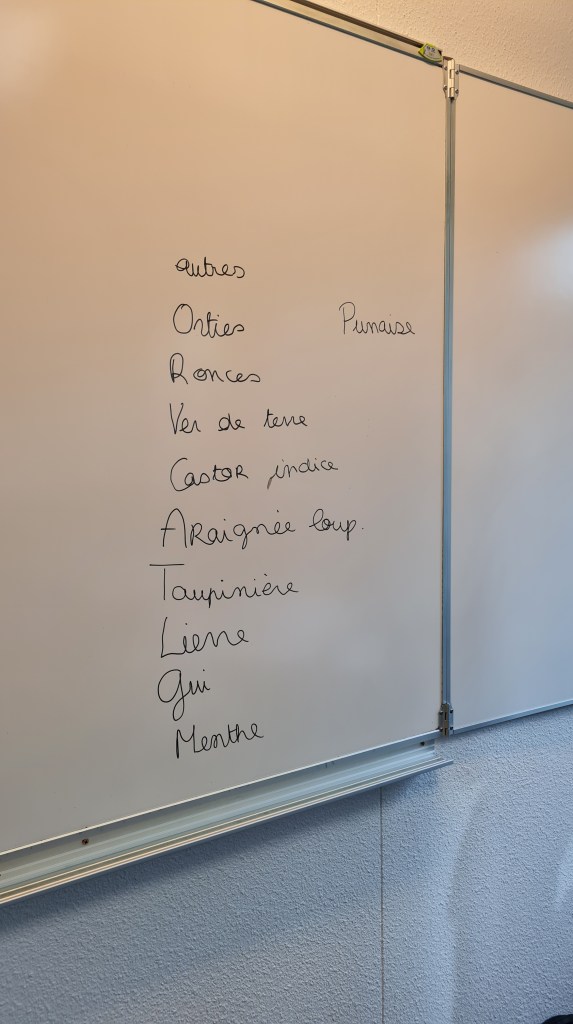 autres
Orties Punaise
Ronces
Ver de terre
Castor indice
Araignée loup.
Taupinière
Lierre
Gui
Menthe